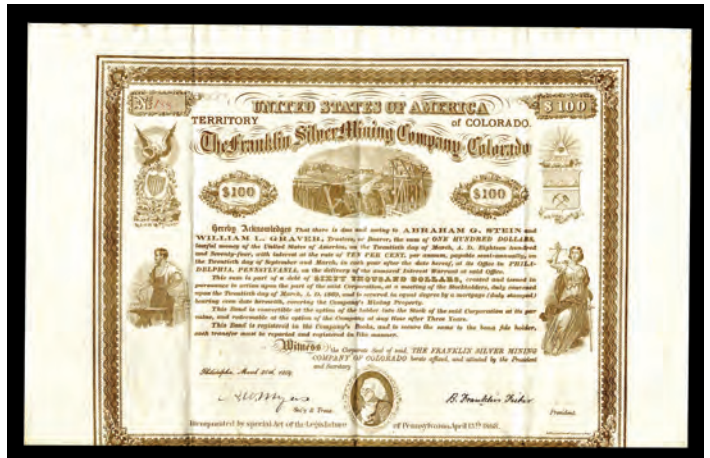 No
UNITED STATES OF AMERICA
$100
TERRITORY of COLORADO.
The Franklin Silver Mining Company Colorado
$100
$100
Hereby Acknowledges That there is due and owing to ABRAHAM G. STEIN and
WILLIAM L. GRAVER, Trustees, or Bearer, the sum of ONE HUNDRED DOLLARS,
lawful money of the United States of America, on the Twentieth day of March, A. D. Eighteen hundred
and Seventy-four, with interest at the rate of TEN PER CENT. per annum, payable semi-annually, on
the Twentieth day of September and March, in each year after the date hereof, at its Office in PHILA-
DELPHIA, PENNSYLVANIA, on the delivery of the annexed Interest Warrant at said Office.
This sum is part of a debt of SIXTY THOUSAND DOLLARS, created and issued in
pursuance to action upon the part of the said Corporation, at a meeting of the Stockholders, duly convened
upon the Twentieth day of March, A. D. 1869, and is secured in equal degree by a mortgage (duly stamped)
bearing even date herewith, covering the Company's Mining Property.
This Bond is convertible at the option of the holder into the Stock of the said Corporation at its par
value, and redeemable at the option of the Company at any time after Three Years.
This Bond is registered in the Company's Books, and to secure the same to the bona fide holder,
each transfer must be reported and registered in like manner.
Witness the Corporate Seal of said, THE FRANKLIN SILVER MINING
COMPANY OF COLORADO hereto affixed, and attested by the President
and Secretary
Philadelphia, March 20th, 1869.
Sec'y & Treas.
B. Franklin Fisher
President.
Incorporated by special Act of the Legislature of Pennsylvania, April